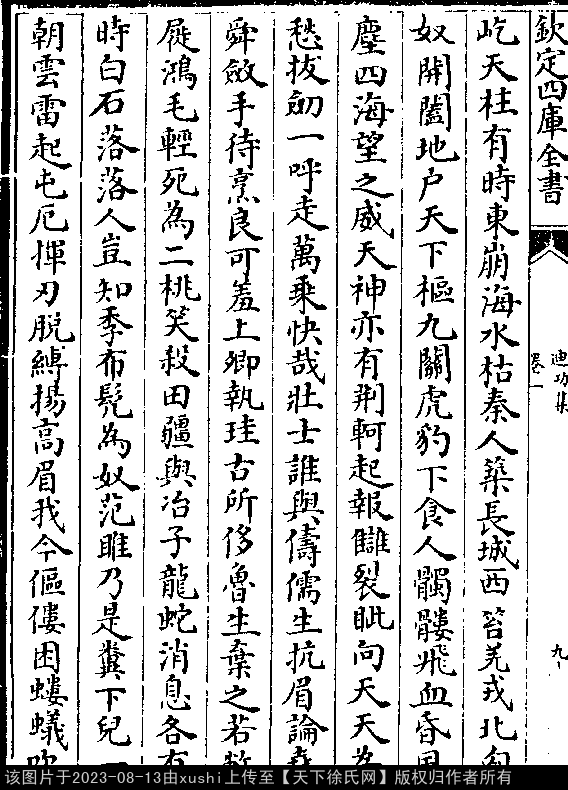 欽定四庫全書
迪功集
卷一
九
屹天柱有時東崩海水枯秦人築長城西笞羌戎北匈
奴開闔地户天下樞九關虎豹下食人髑髏飛血昏風
塵四海望之威天神亦有荆軻起報讎裂眦向天天為
愁拔劒一呼走萬乗快哉壯士誰與儔儒生抗眉論堯
舜斂手待烹良可羞上卿執珪古所侈魯生棄之若敝
屣鴻毛輕死為二桃笑殺田疆與冶子龍蛇消息各有
時白石落落人豈知季布髠為奴范雎乃是糞下兒一
朝雲雷起屯厄揮刃脱縛揚高眉我今傴僂困螻蟻吹
该图片于2023-08-13由xushi上传至【天下徐氏网】版权归作者所有